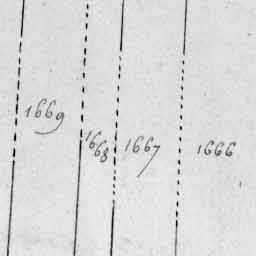 1669
1668
1667
1666